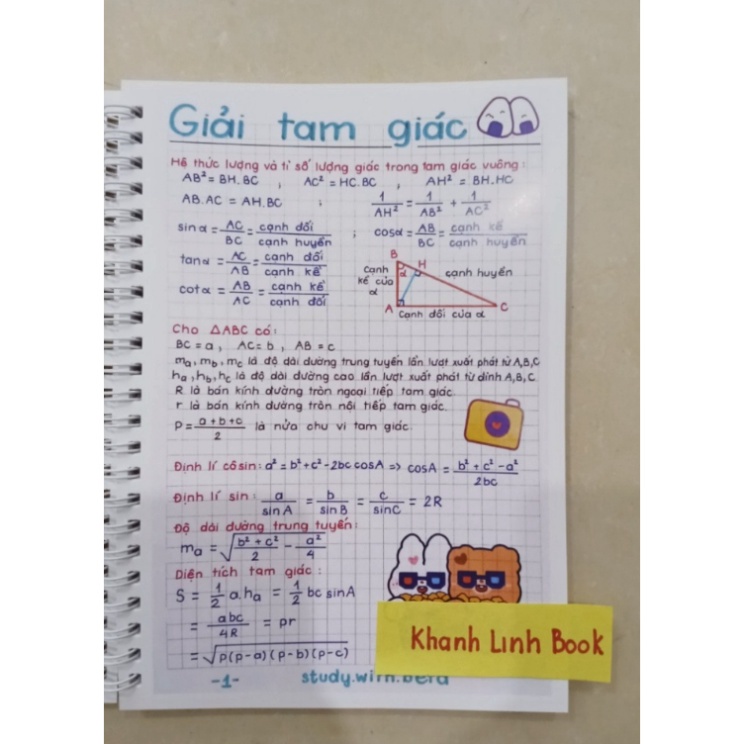 Giải tam giác
Hệ thức lượng và tỉ số lượng giác trong tam giác vuông:
AB² = BH.BC ; AC² = HC.BC , AH² = BH.HC
AB.AC = AH.BC ; 1/AH² = 1/AB² + 1/AC²
sinα = AC/BC = cạnh đối/cạnh huyền ; cosα = AB/BC = cạnh kề/cạnh huyền
tanα = AC/AB = cạnh đối/cạnh kề
cotα = AB/AC = cạnh kề/cạnh đối
B
H
α
Cạnh kề của α
cạnh huyền
A
C
Cạnh đối của α
Cho ΔABC có:
BC = a , AC = b , AB = c
mₐ, m_b, m_c là độ dài đường trung tuyến lần lượt xuất phát từ A,B,C
hₐ, h_b, h_c là độ dài đường cao lần lượt xuất phát từ đỉnh A,B,C
R là bán kính đường tròn ngoại tiếp tam giác
r là bán kính đường tròn nội tiếp tam giác.
P = (a+b+c)/2 là nửa chu vi tam giác
Định lí côsin: a² = b² + c² - 2bc cosA => cosA = (b² + c² - a²)/2bc
Định lí sin: a/sinA = b/sinB = c/sinC = 2R
Độ dài đường trung tuyến:
mₐ = √((b² + c²)/2 - a²/4)
Diện tích tam giác:
S = 1/2 a.hₐ = 1/2 bc sinA
= abc/4R = pr
= √(p(p-a)(p-b)(p-c))
Khanh Linh Book
-1-
study.with.bera